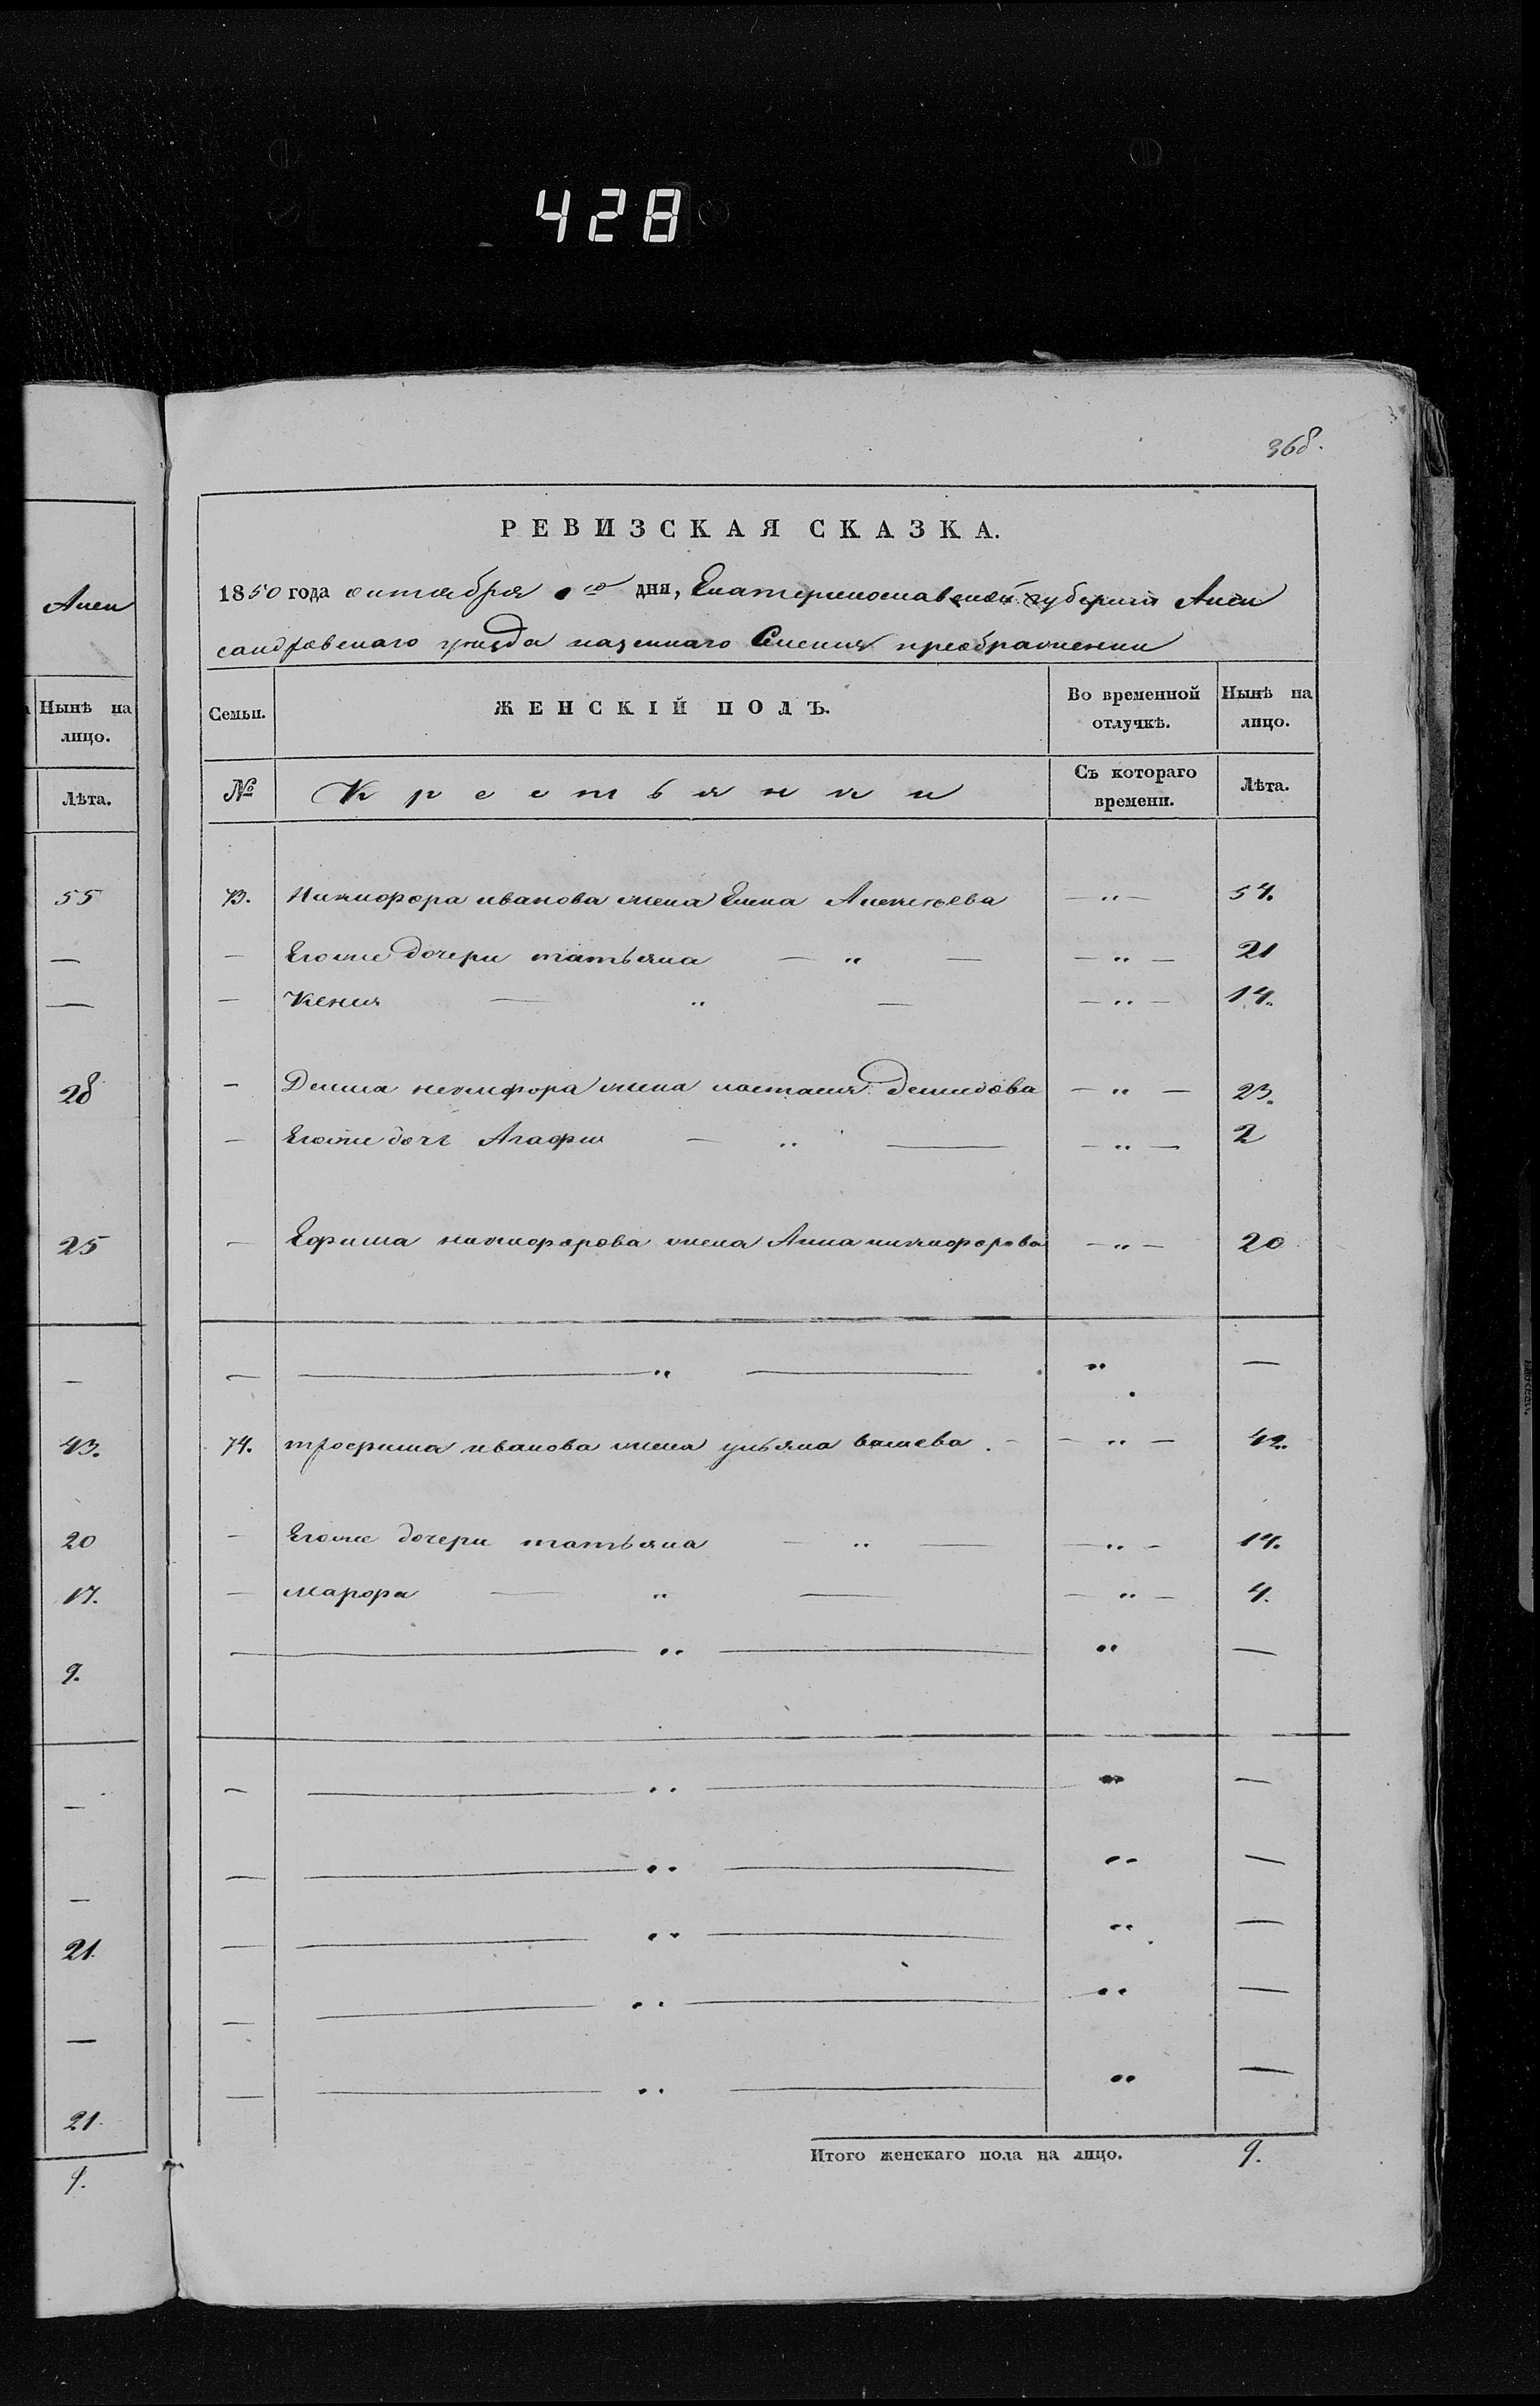 428
368.
РЕВИЗСКАЯ СКАЗКА.
1850 года октября дня, Екатеринославской губернии Алек
сандровскаго уезда казеннаго Селения преображенки
Алек
Семьи.
ЖЕНСКІЙ ПОЛЪ.
Во временной отлучкѣ.
Нынѣ на лицо.
№
Крестьянки
Съ котораго времени.
Лѣта.
Нынѣ на лицо.
Лѣта.
73. Никифора иванова жена Елена Алексѣева — " — 54.
— Егоже дочери татьяна — " — — " — 21
— Ксения — " — — " — 14.
— Демида никифора жена настасия Демидова — " — 23.
— Егоже дочь Агафия — " — — " — 2
— Ефима никифорова жена Анна никифорова — " — 20
— — " — " —
74. трофима иванова жена ульяна — — " — 42.
— Егоже дочери татьяна — " — — " — 14.
— марфа — " — — " — 4.
— " — " —
— — " — " —
— — " — " —
— — " — " —
— — " — " —
— — " — " —
Итого женскаго пола на лицо. 9.
55
—
—
28
25
—
43.
20
17.
9.
—
—
21.
—
21.
9.